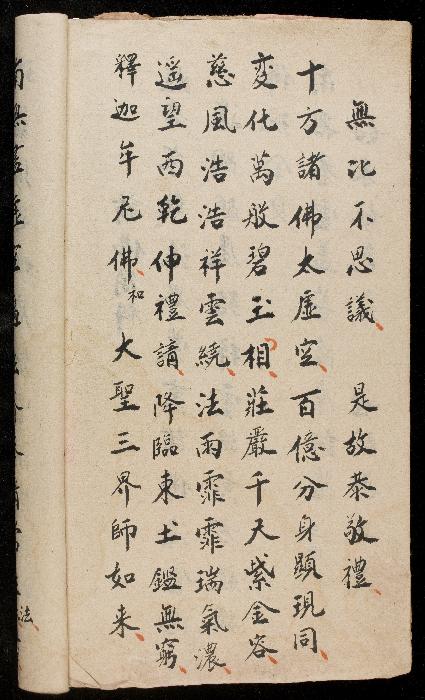 無比不思議 是故恭敬禮
十方諸佛太虛空百億分身顯現同
變化萬般碧玉相莊嚴千天紫金容
慈風浩浩祥雲繞法雨霏霏瑞氣濃
遥望西乾伸禮請降臨東土鑑無窮
釋迦牟尼佛和大聖三界師如来
法